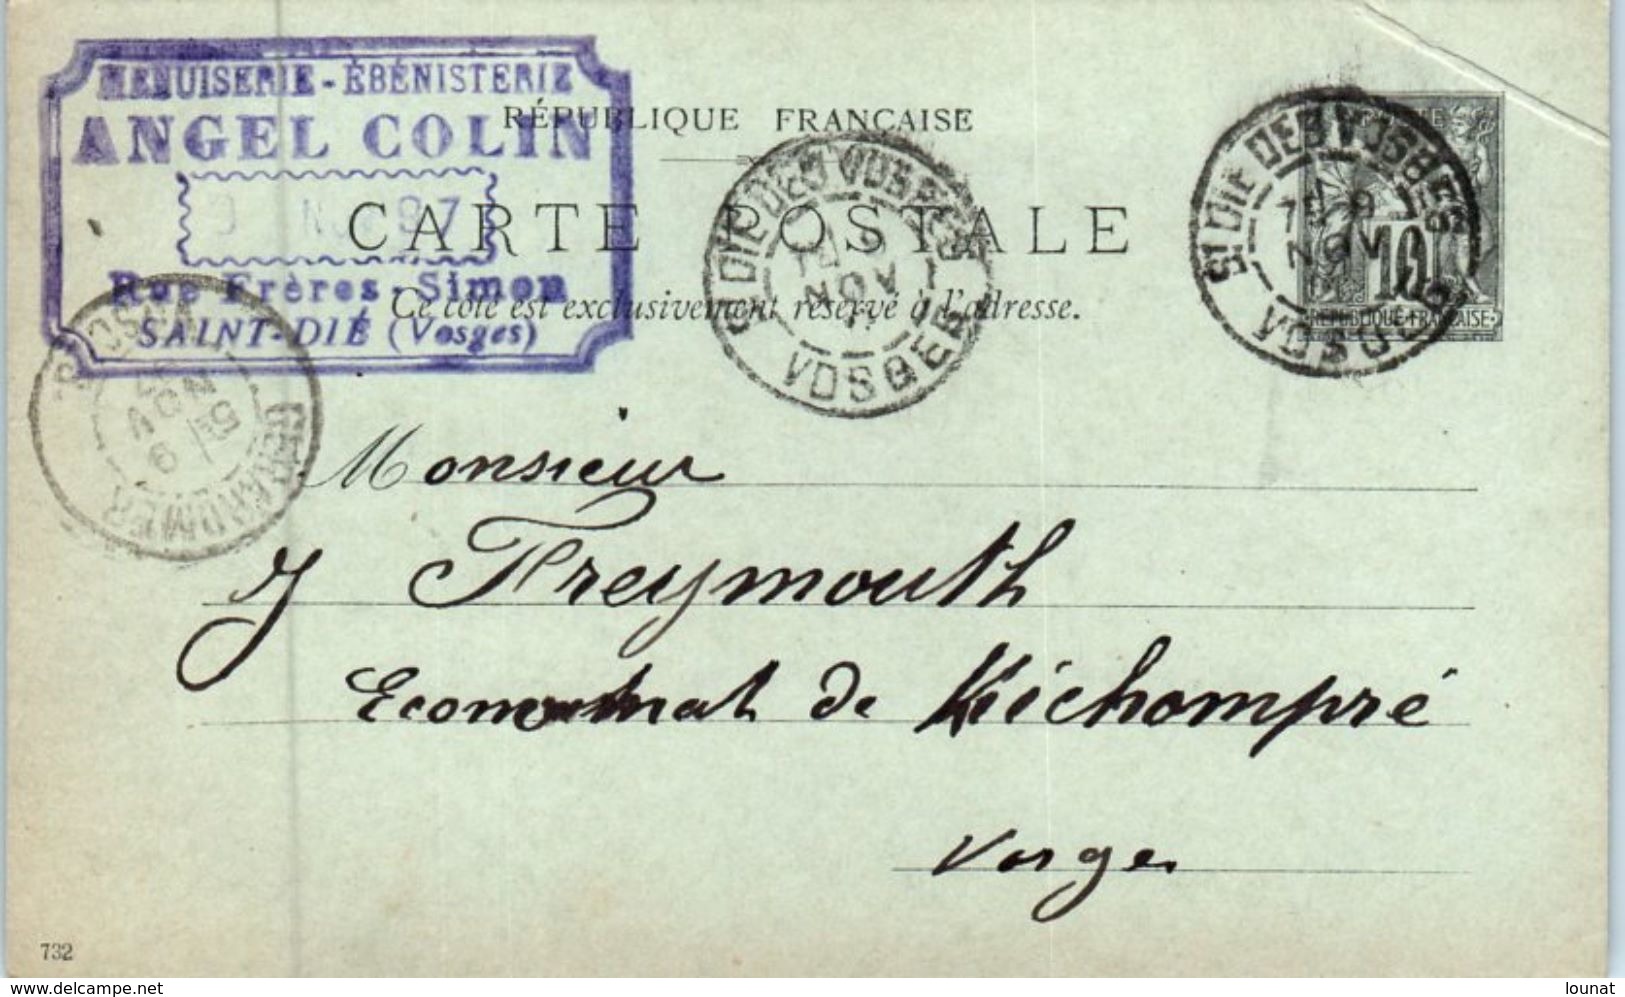 MENUISERIE-ÉBÉNISTERIE
ANGEL COLIN
NOV 97
Rue Frères-Simon
SAINT-DIÉ (Vosges)
RÉPUBLIQUE FRANÇAISE
CARTE POSTALE
Ce côté est exclusivement réservé à l'adresse.
ST DIÉ DES VOSGES
NOV
VOSGES
ST DIÉ DES VOSGES
NOV
VOSGES
10
RÉPUBLIQUE FRANÇAISE
GERARDMER
VOSGES
NOV
Monsieur
J Freymouth
Economat de Kichompré
Vosges
732
delcampe.net
lounat